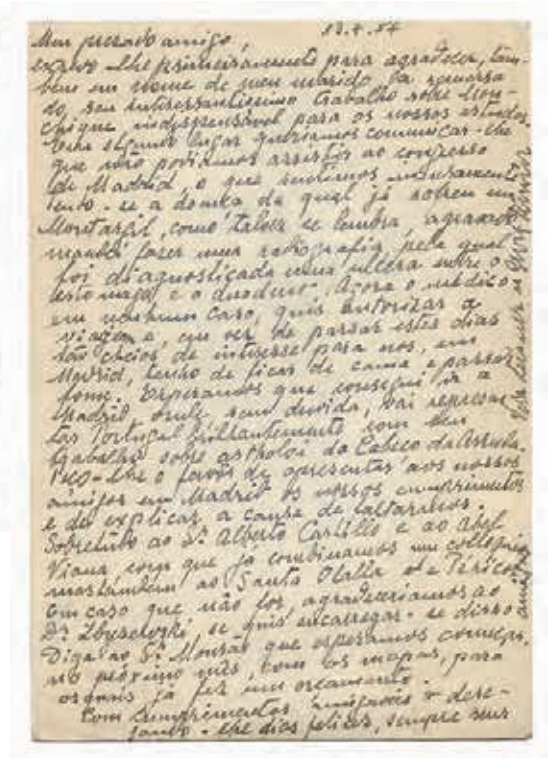 13.4.54
Meu prezado amigo,
escrevo-lhe primeiramente para agradecer, tam-
bem em nome de meu marido la remessa
do seu interessantissimo trabalho sobre Mon-
chique, indispensável para os nossos estudos.
Em segundo lugar queriamos communicar-lhe
que não podiamos assistir ao congresso
de Madrid, o que sentimos
Tendo-se a doença da qual já sofreu em
Montargil, como talvez se lembra, agravado
mandei fazer uma radiografia pela qual
foi diagnosticada uma ulcera entre o
estomago e o duodeno. Agora o médico
em nenhum caso, quis autorizar a
viagem e, em vez de passar estes dias
tão cheios de interesse para nos, em
Madrid, tenho de ficar de cama e passar
fome. Esperamos que consegui ir a
Madrid onde, sem duvida, vai represen-
tar Portugal brilhantemente com seu
trabalho sobre as tholoi do Cabeço da Arruda.
Peço-lhe o favor de apresentar aos nossos
amigos em Madrid os nossos cumprimentos
e de explicar a causa de faltarmos.
Sobretudo ao Sr. Alberto Castillo e ao Abel
Viana com que já combinamos um colloquio
mas também ao Santa Olalla e Pericot.
Em caso que não for, agradeceriamos ao
Dr. Zbyszewski se quis encarregar-se disso
Diga ao Sr. Mourão que esperamos começar,
no próximo mês, com os mapas, para
os quais já fez um orçamento.
Com cumprimentos amigaveis e dese-
jando-lhe dias felizes, sempre seus
amigos
Vera Leisner e Georg Leisner